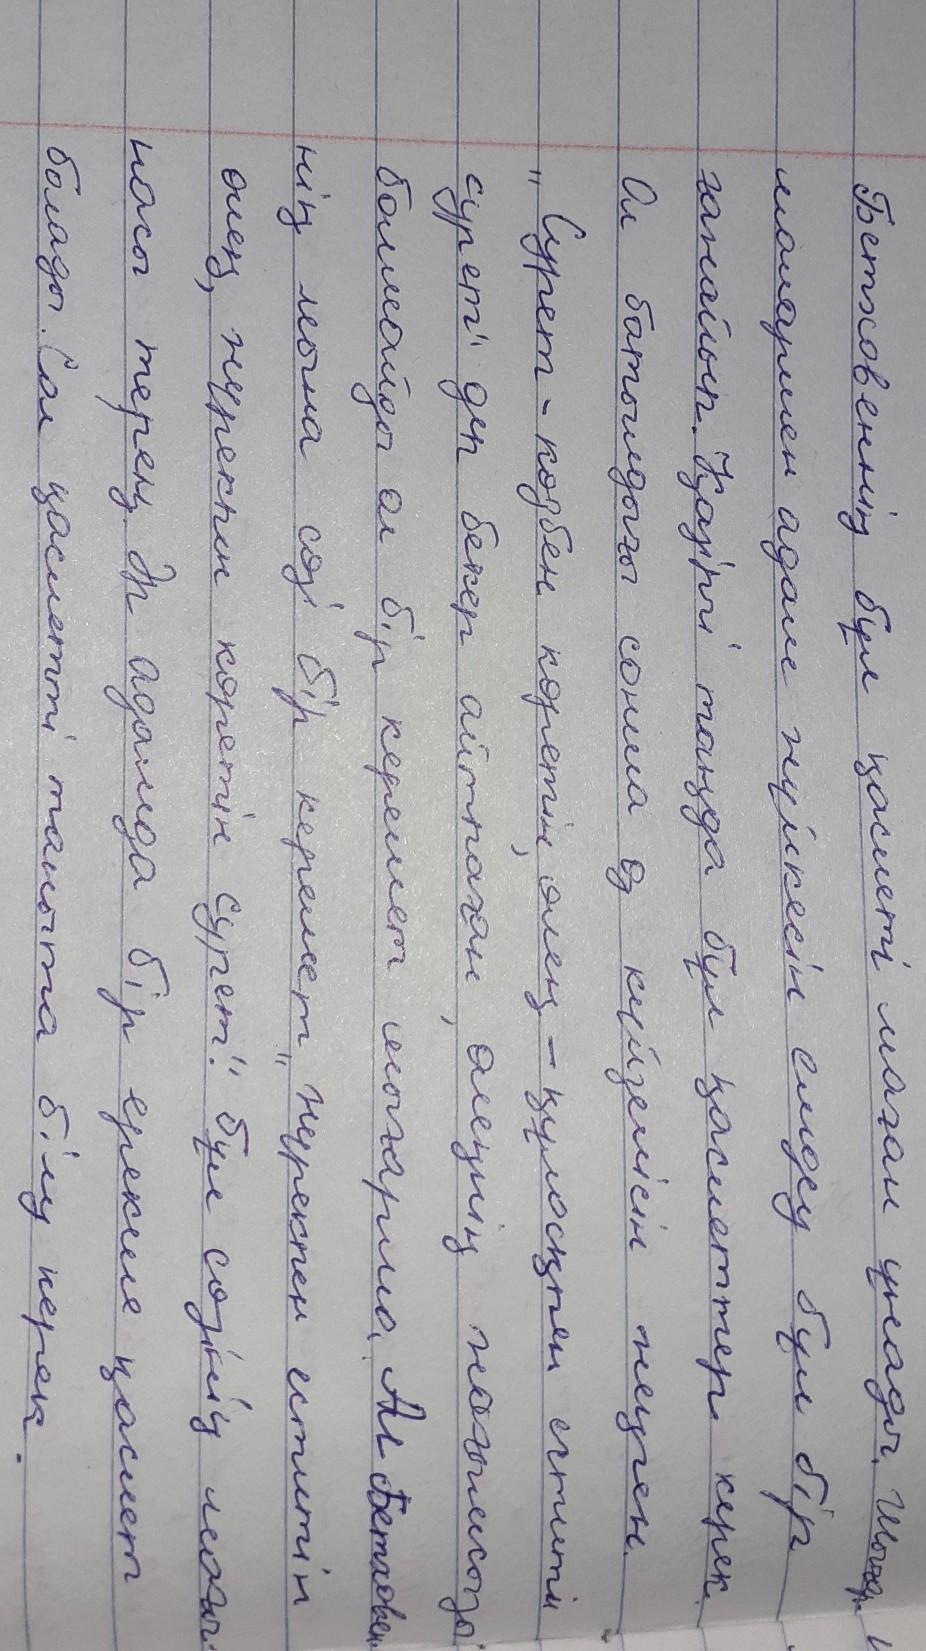 Бетховеннің бұл қасиеті маған ұнады. Шығар-
маларымен адам жүйкесін емдеу бұл бір
ғажайып. Қазіргі таңда бұл қасиеттер керек.
Ол батылдығы сонша өз күйзелісін жеңген.
"Сурет - көзбен көретін өлең - құлақпен естітін
сурет" деп бекер айтпаған, өлеңнің жазылмасы
болмайды ол бір керемет шығарма. Ал Бетховен-
нің мына сөзі бір керемет "жүрекпен естітін
өлең, жүрекпен көретін сурет." бұл сөзінің мағы-
насы терең әр адамда бір ерекше қасиет
болады. Сол қасиетті танытта білу керек.